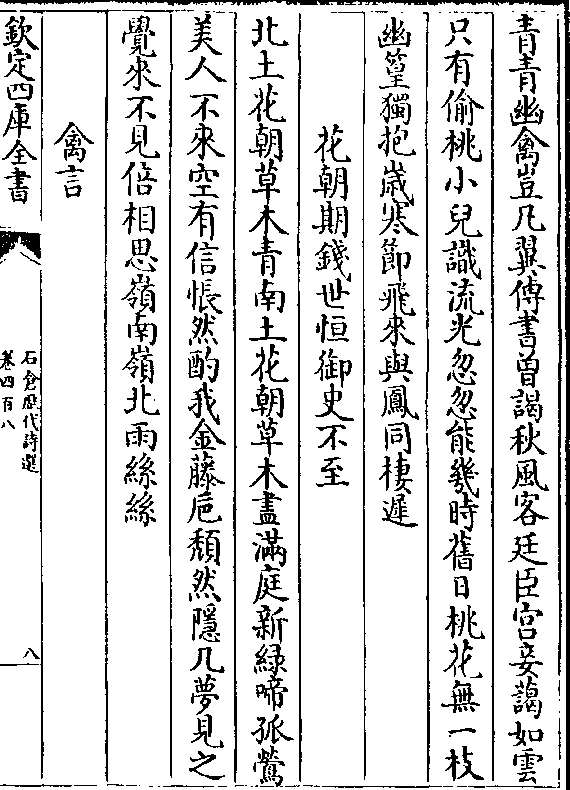 青青幽禽豈凡翼傳書曾謁秋風客廷臣宫妾藹如雲
只有偷桃小兒識流光忽忽能幾時舊日桃花無一枝
幽篁獨抱歲寒節飛來與鳳同棲遲
花朝期錢世恒御史不至
北土花朝草木青南土花朝草木盡滿庭新緑啼孤鶯
美人不來空有信悵然酌我金藤巵頽然隱几夢見之
覺來不見倍相思嶺南嶺北雨絲絲
禽言
欽定四庫全書
石倉歴代詩選
卷四百八
八